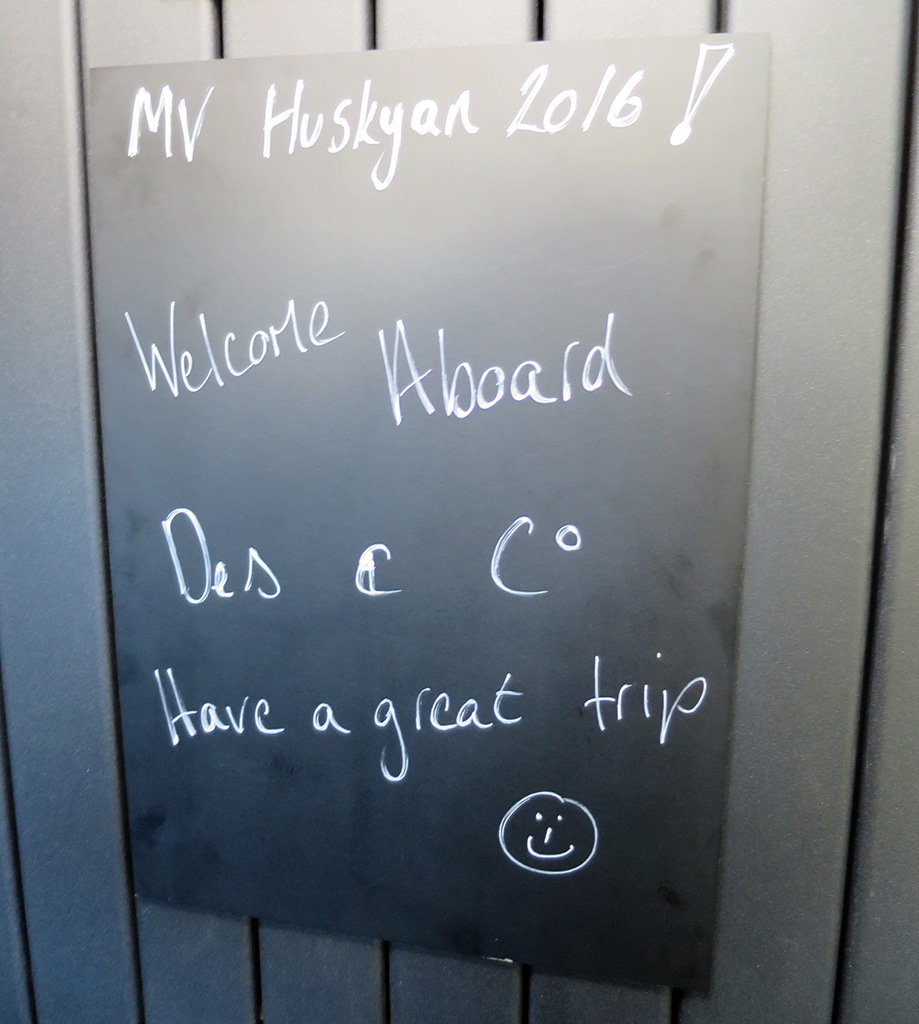 MV Huskyan 2016!
Welcome Aboard
Des & Co
Have a great trip